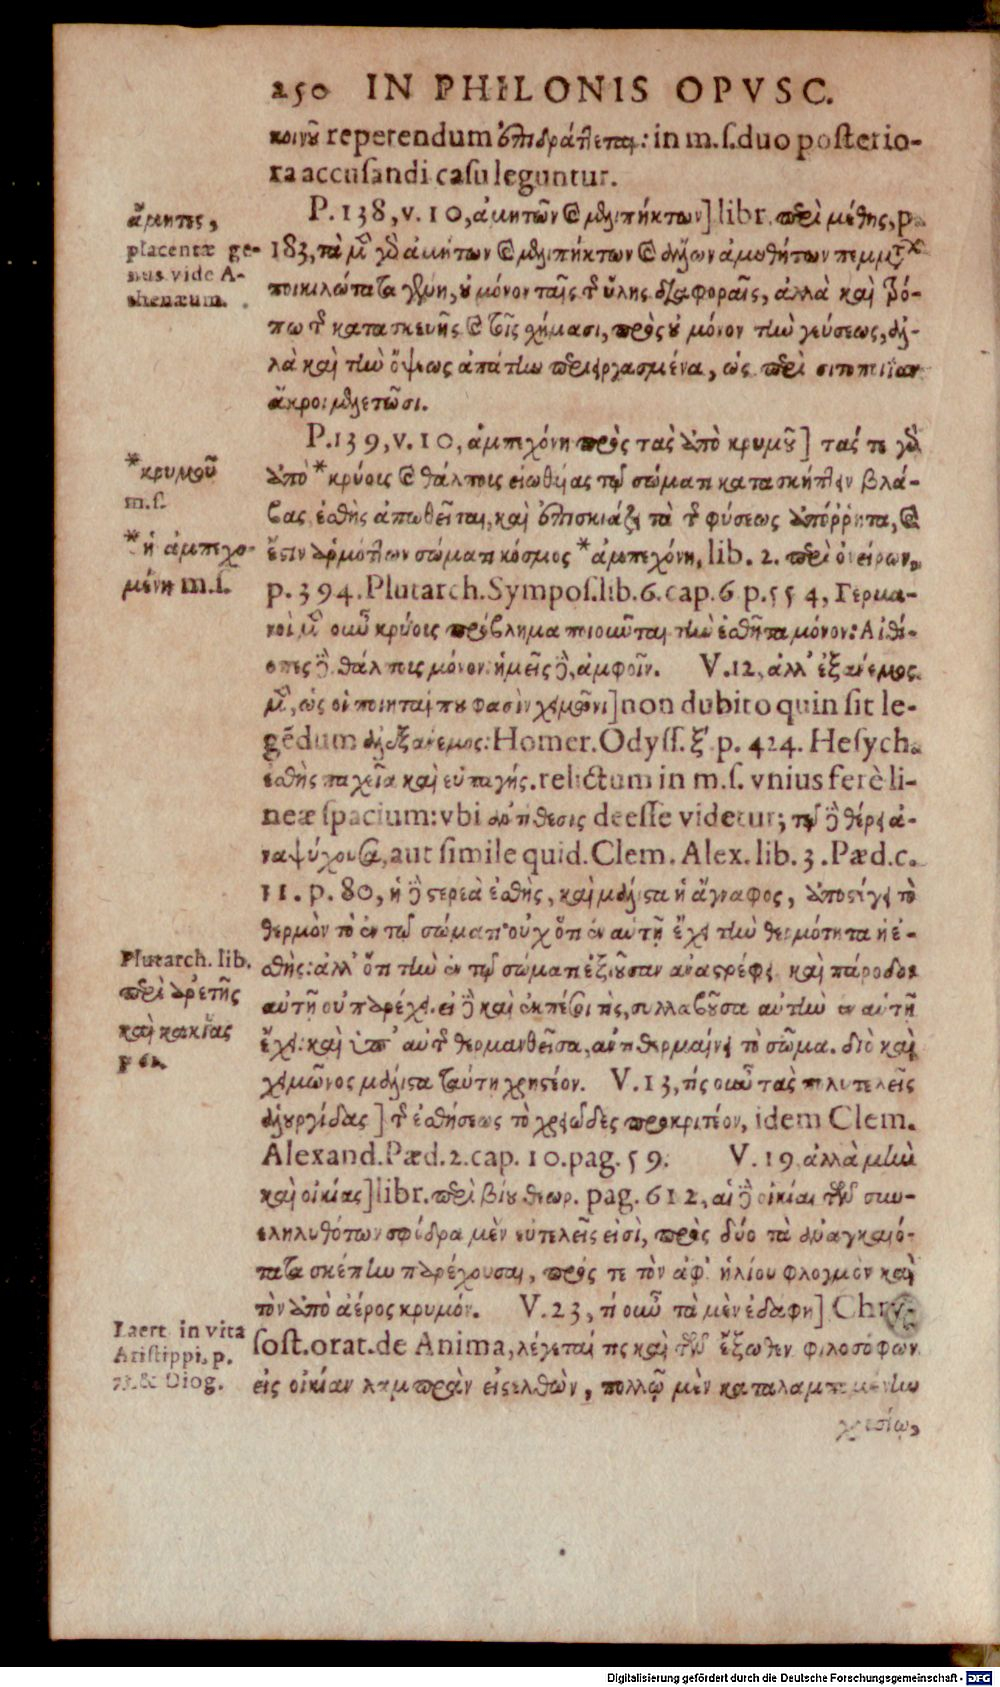 250 IN PHILONIS OPVSC.
κοινοῦ reperendum ἐπιδράττεται: in m.s. duo posterio-
ra accusandi casu leguntur.
P. 138, v. 10, ἀμητῶν καὶ μελιπήκτων] libr. περὶ μέθης, p.
183, τὰ μὲν γὰρ ἀμήτων καὶ μελιπήκτων καὶ ἄλλων ἀμυθήτων πεμμάτων
ποικιλώτατα γένη, οὐ μόνον ταῖς τῆς ὕλης διαφοραῖς, ἀλλὰ καὶ τρό-
πῳ τῆς κατασκευῆς καὶ τοῖς σχήμασι, πρὸς οὐ μόνον τὴν γεύσεως, ἀλ-
λὰ καὶ τὴν ὄψεως ἀπάτην περιειργασμένα, ὡς περὶ σιτοποιΐαν
ἄκροι μελετῶσι.
P. 139, v. 10, ἀμπεχόνη πρὸς τὰς ἀπὸ κρυμοῦ] τάς τε γὰρ
ἀπὸ *κρύους καὶ θάλπους εἰωθυίας τῷ σώματι κατασκήπτειν βλά-
βας ἐσθὴς ἀπωθεῖται, καὶ ἐπισκιάζει τὰ τῆς φύσεως ἀπόρρητα, καὶ
ἔστιν ἁρμόττων σώματι κόσμος *ἀμπεχόνη, lib. 2. περὶ ὀνείρων,
p. 394. Plutarch. Sympos. lib. 6. cap. 6 p. 554, Γερμα-
νοὶ μὲν οὖν κρύους πρόβλημα ποιοῦνται τὴν ἐσθῆτα μόνον: Αἰθί-
οπες δὲ θάλπους μόνον: ἡμεῖς δὲ, ἀμφοῖν. V. 12, ἀλλ' ἐξανέμος
μὲν, ὡς οἱ ποιηταί που φασὶν χειμῶνι] non dubito quin sit le-
gēdum ἀλεξάνεμος: Homer. Odyss. ξ p. 424. Hesych.
ἐσθὴς παχεῖα καὶ εὐπαγής. relictum in m.s. vnius ferè li-
neæ spacium: vbi deesse videtur; τῷ δὲ θέρει ἀ-
ναψύχουσα, aut simile quid. Clem. Alex. lib. 3. Pæd. c.
11. p. 80, ἡ δὲ στερεὰ ἐσθὴς, καὶ μάλιστα ἡ ἄγναφος, ἀποστέγει τὸ
θερμὸν τὸ ἐν τῷ σώματι· οὐχ ὅτι ἐν αὐτῇ ἔχει τὴν θερμότητα ἡ ἐ-
σθὴς: ἀλλ' ὅτι τὴν ἐν τῷ σώματι ἐξιοῦσαν ἀναστρέφει καὶ πάροδον
αὐτῇ οὐ παρέχει. εἰ δὲ καὶ ἐκπέσοι τις, συλλαβοῦσα αὐτὴν ἐν αὐτῇ
ἔχει: καὶ ὑπ' αὐτῆς θερμανθεῖσα, ἀντιθερμαίνει τὸ σῶμα. διὸ καὶ
χειμῶνος μάλιστα ταύτῃ χρηστέον. V. 13, τίς οὖν τὰς πολυτελεῖς
ἁλουργίδας] τῆς ἐσθήσεως τὸ χρειῶδες προκριτέον, idem Clem.
Alexand. Pæd. 2. cap. 10. pag. 59. V. 19 ἀλλὰ μὴν
καὶ οἰκίας] libr. περὶ βίου θεωρ. pag. 612, αἱ δὲ οἰκίαι τῶν συν-
εληλυθότων σφόδρα μὲν εὐτελεῖς εἰσὶ, πρὸς δύο τὰ ἀναγκαιό-
τατα σκέπην παρέχουσαι, πρός τε τὸν ἀφ' ἡλίου φλογμὸν καὶ
τὸν ἀπὸ ἀέρος κρυμόν. V. 23, τί οὖν τὰ μὲν ἐδάφη] Chry-
sost. orat. de Anima, λέγεταί τις καὶ τῶν ἔξωθεν φιλοσόφων
εἰς οἰκίαν λαμπρὰν εἰσελθὼν, πολλῷ μὲν καταλαμπομένην
χρυσίῳ,
ἄμητες,
placentæ ge-
nus. vide A-
thenæum.
*κρυμοῦ
m.s.
*ἡ ἀμπεχο-
μένη m.s.
Plutarch. lib.
περὶ ἀρετῆς
καὶ κακίας
Laert. in vita
Aristippi, p.
73. & Diog.
Digitalisierung gefördert durch die Deutsche Forschungsgemeinschaft - DFG